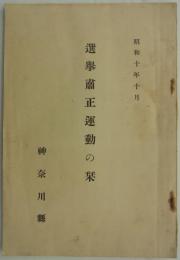 昭和十年十月
選擧肅正運動の栞
神奈川縣